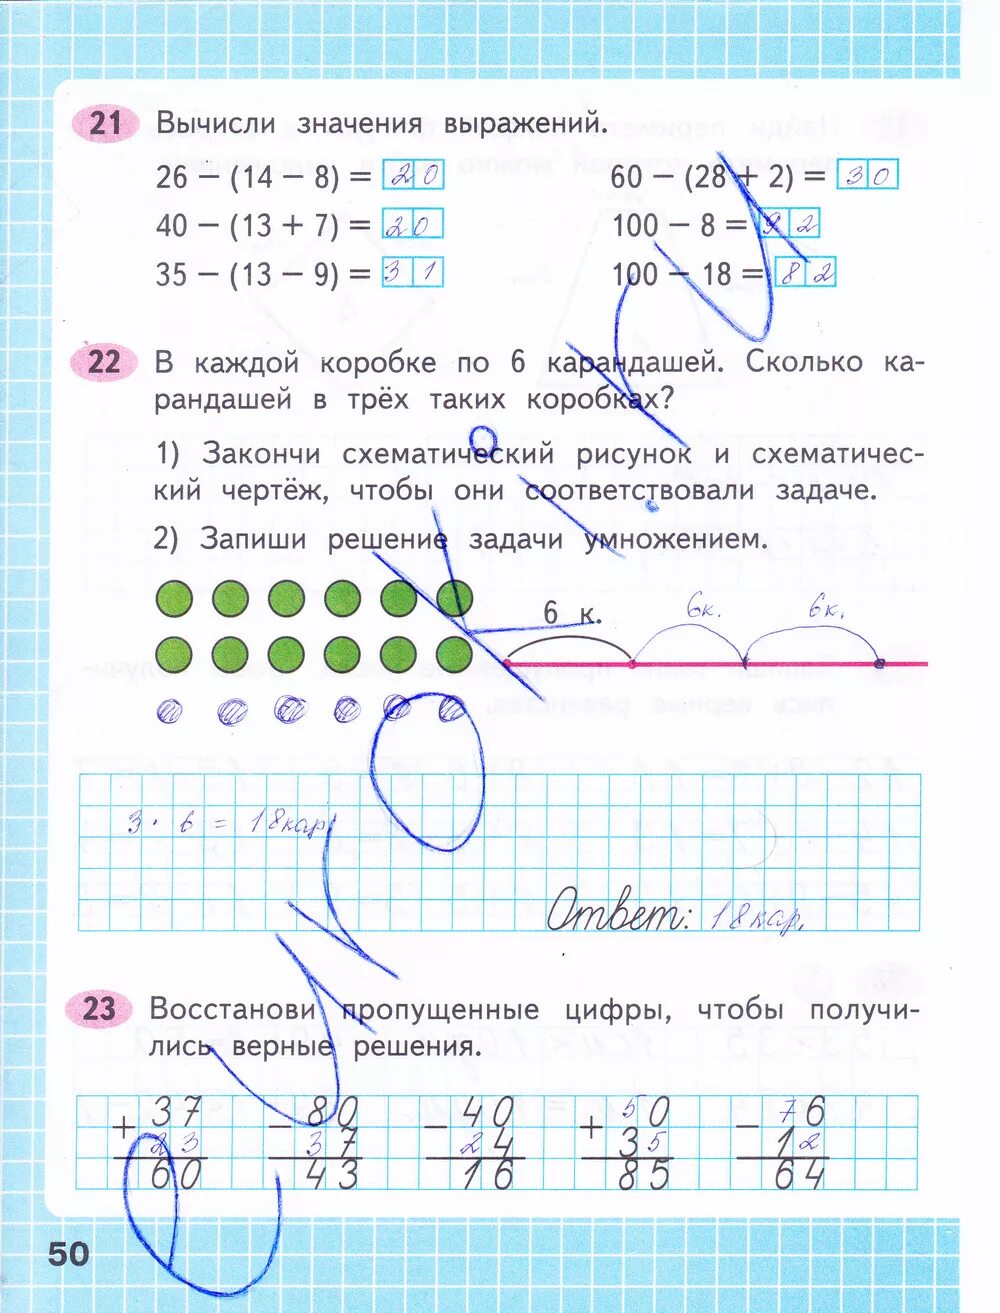 21 Вычисли значения выражений.
26 − (14 − 8) = 20 60 − (28 + 2) = 30
40 − (13 + 7) = 20 100 − 8 = 92
35 − (13 − 9) = 31 100 − 18 = 82
22 В каждой коробке по 6 карандашей. Сколько ка-
рандашей в трёх таких коробках?
1) Закончи схематический рисунок и схематичес-
кий чертёж, чтобы они соответствовали задаче.
2) Запиши решение задачи умножением.
6 к. 6к. 6к.
3 · 6 = 18кар.
Ответ: 18кар.
23 Восстанови пропущенные цифры, чтобы получи-
лись верные решения.
37 80 40 50 76
+ 23 − 37 − 24 + 35 − 12
60 43 16 85 64
50